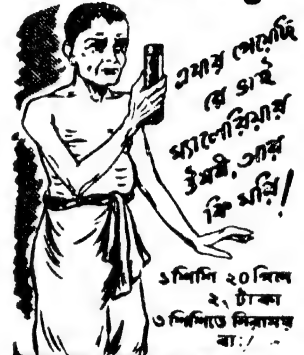 এবার পেয়েছি
রে ভাই
ম্যালেরিয়ার
ঔষধী, আর
কি মরি!
১ শিশি ২০ পিল
২৲ টাকা
৩ শিশিতে নিরাময়
বা!